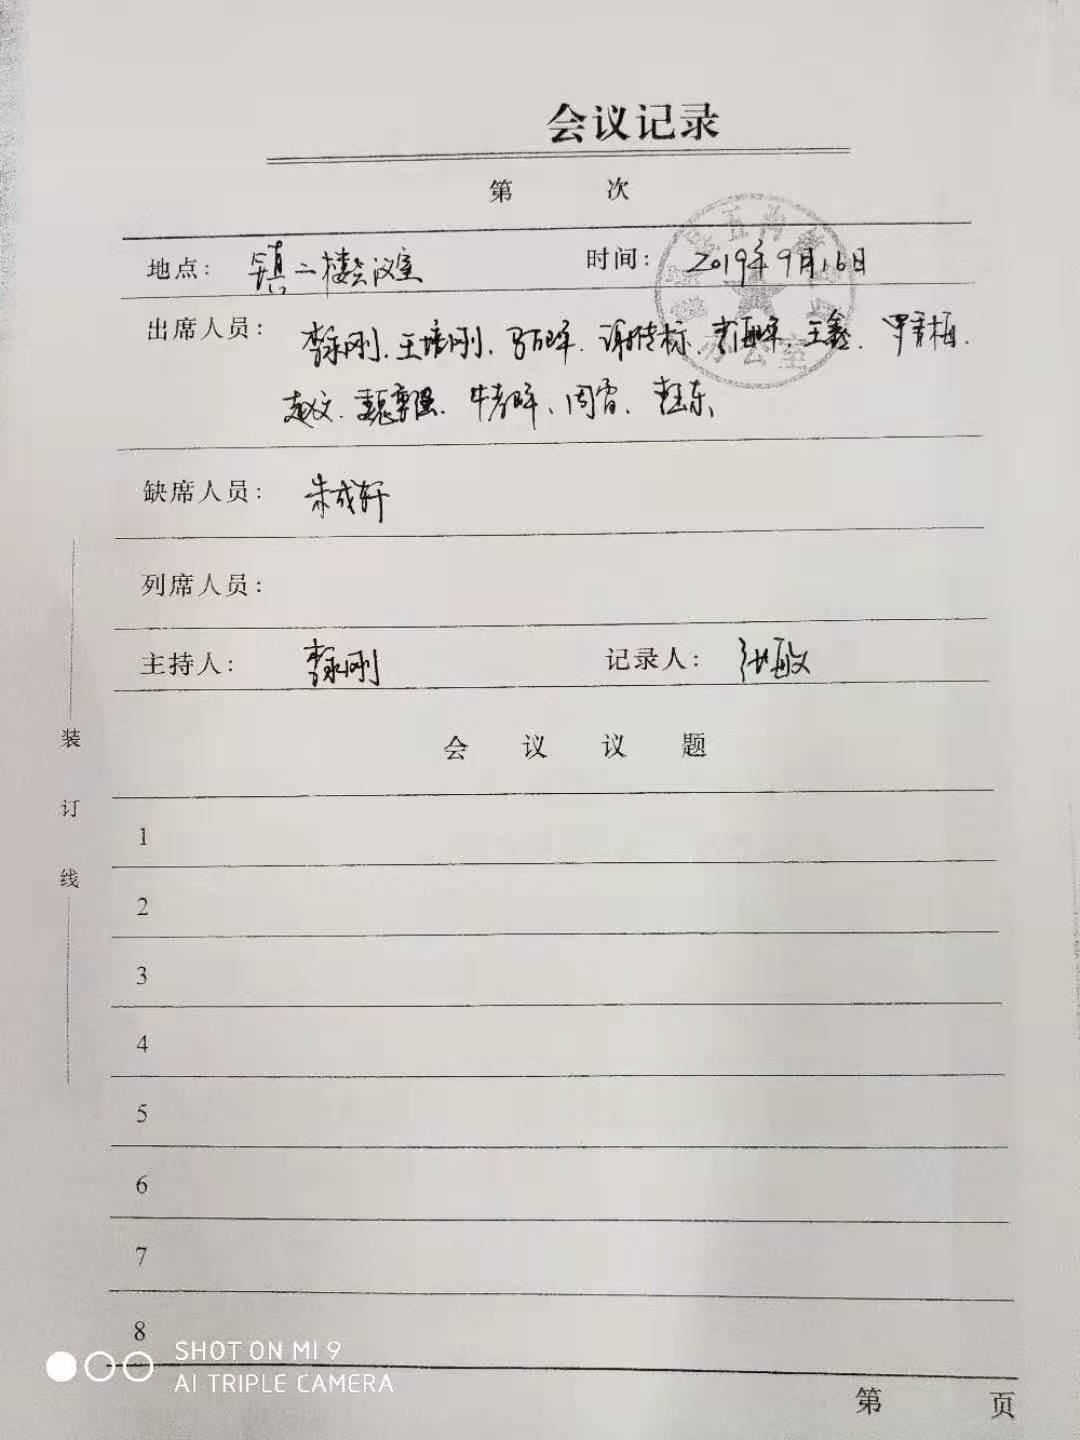 会议记录
第 次
地点： 镇二楼会议室 时间： 2019年9月16日
出席人员： 李永刚、王培刚、马百晖、谢 标、 晖、王鑫、罗青梅、
赵文、魏 强、牛 晖、周雷、 东、
缺席人员： 朱成轩
列席人员：
主持人： 李永刚 记录人： 张敏
会 议 议 题
1
2
3
4
5
6
7
8
第 页
装
订
线
办公室
SHOT ON MI 9
AI TRIPLE CAMERA